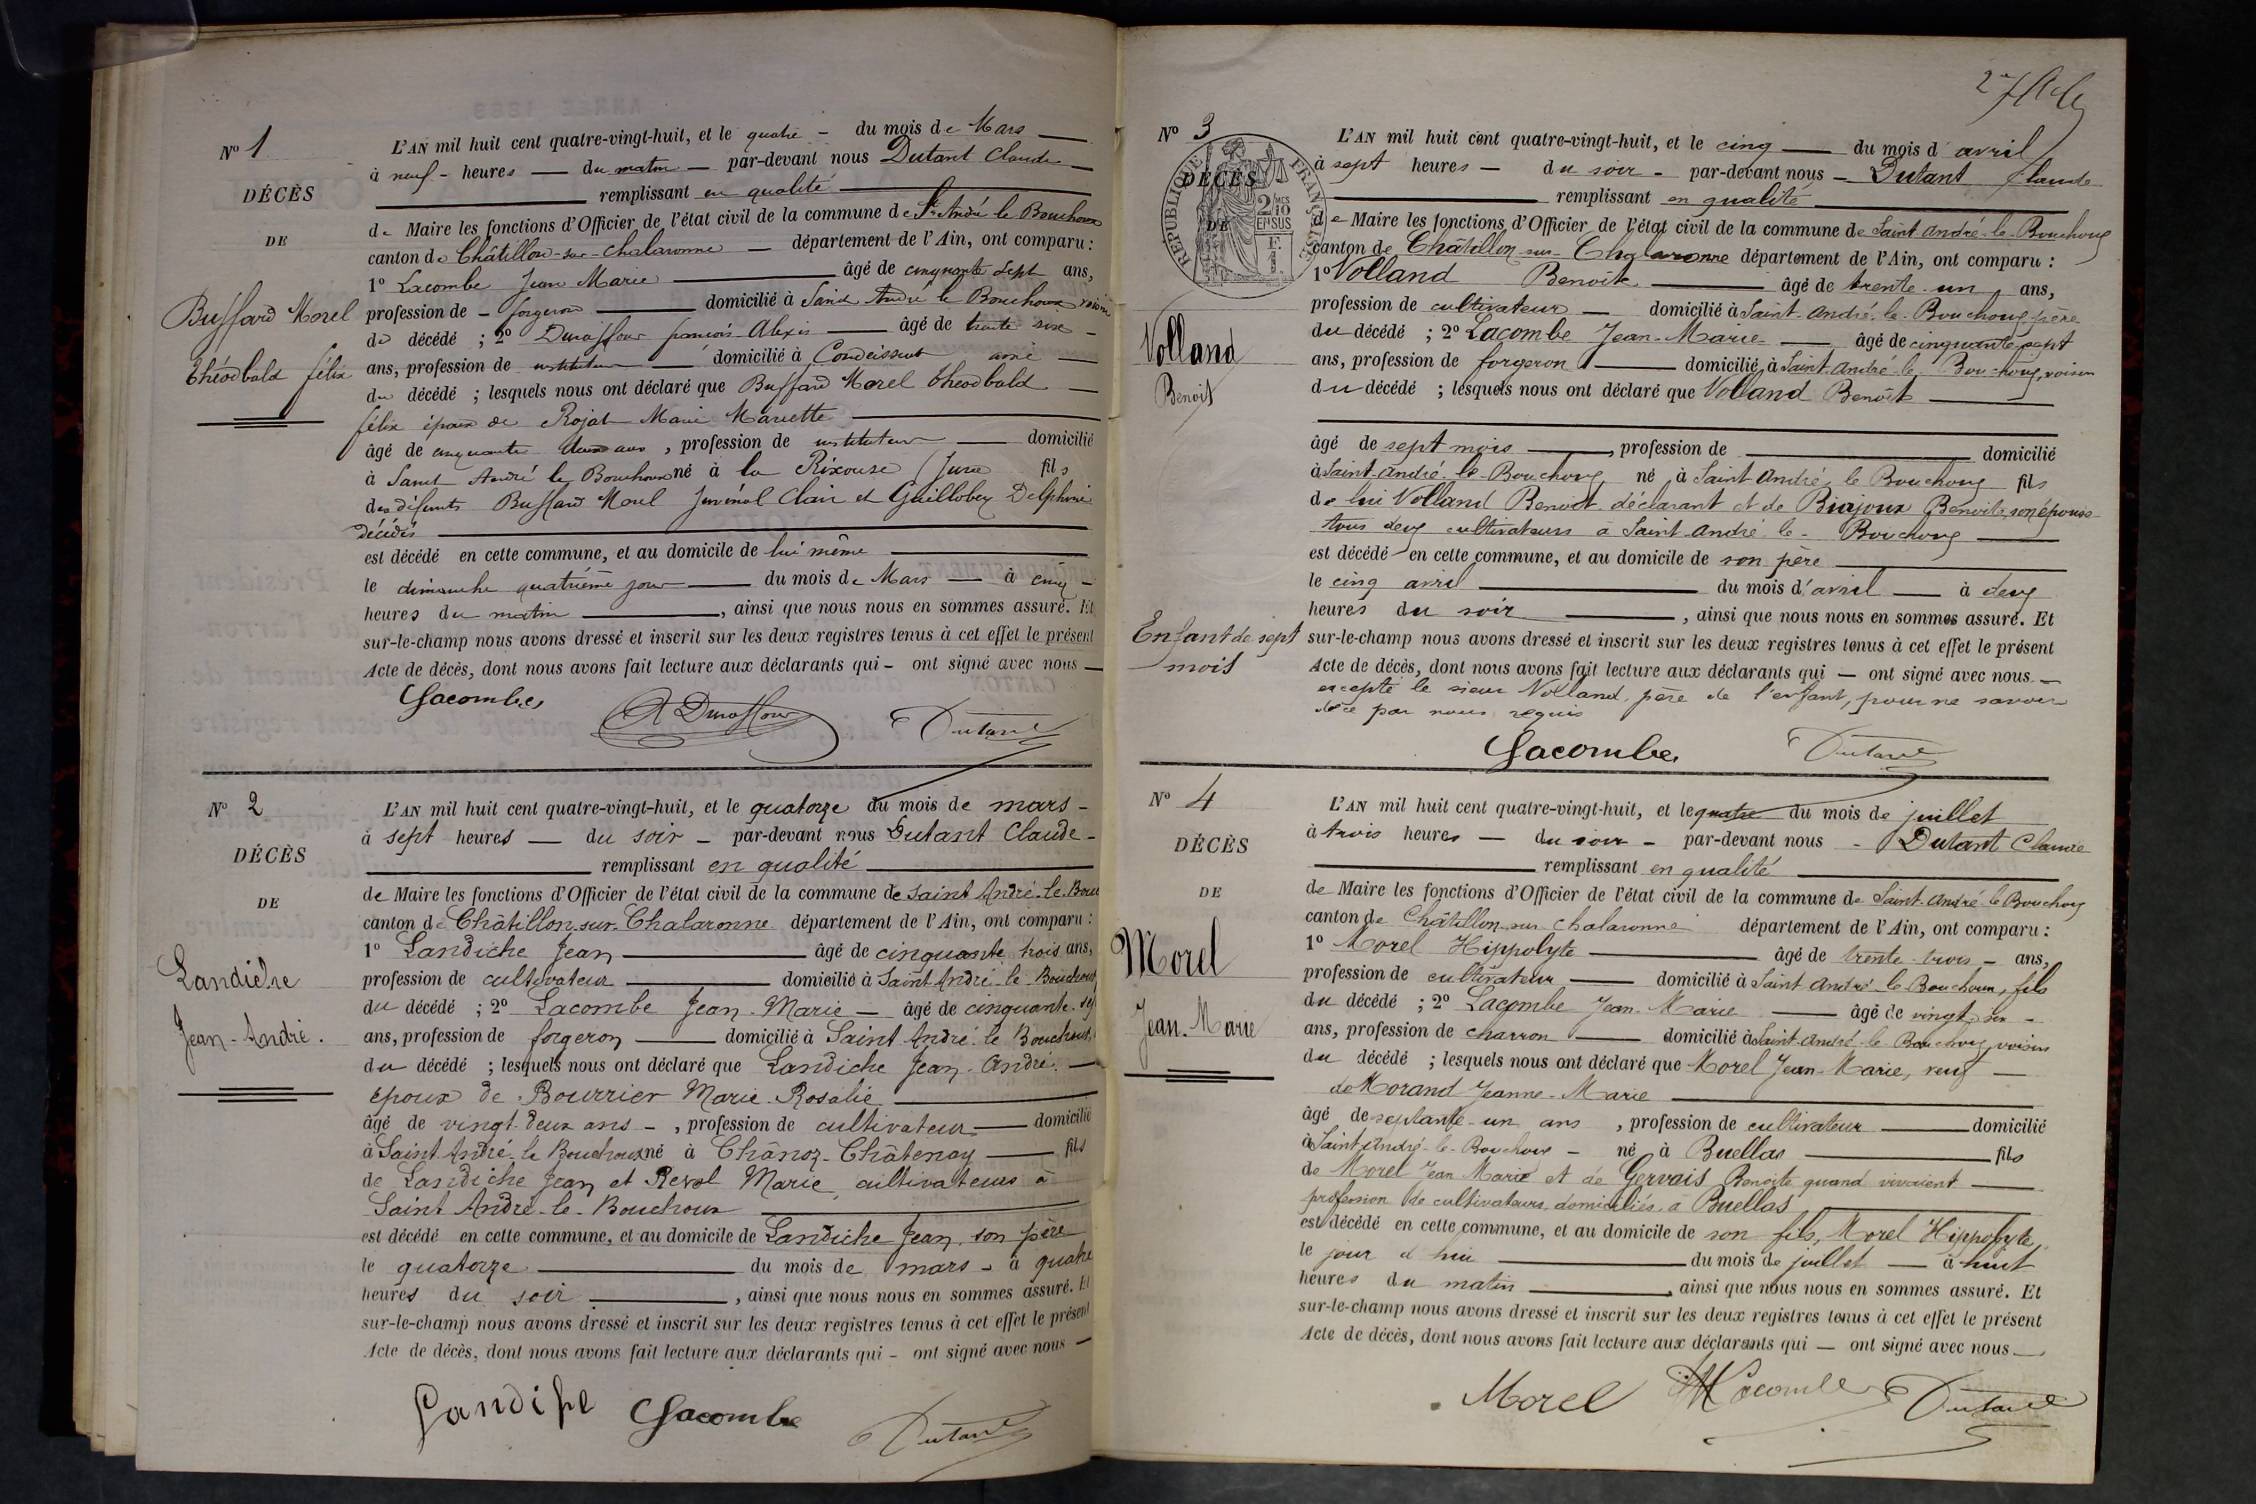 Nº 1
DÉCÈS
DE
Buffard Morel
Théodbald félix
L'AN mil huit cent quatre-vingt-huit, et le quatre - du mois de Mars
à neuf - heures — du matin — par-devant nous Dutant Claude
remplissant en qualité
de Maire les fonctions d'Officier de l'état civil de la commune de St André le Bouchoux
canton de Châtillon-sur-Chalaronne — département de l'Ain, ont comparu :
1º Lacombe Jean Marie — âgé de cinquante sept ans,
profession de - forgeron — domicilié à Saint André le Bouchoux voisin
du décédé ; 2º Duraffour françois Alexis — âgé de trente six -
ans, profession de instituteur — domicilié à Condeissiat ami —
du décédé ; lesquels nous ont déclaré que Buffard Morel théodbald —
félix époux de Rojat Marie Mariette
âgé de cinquante deux ans, profession de instituteur — domicilié
à Saint André le Bouchoux né à la Rixouse (Jura fils
des défunts Buffard Morel Juvénal Clair et Guillobey Delphine
décédés
est décédé en cette commune, et au domicile de lui même
le dimanche quatrième jour — du mois de Mars — à cinq -
heures du matin —, ainsi que nous nous en sommes assuré. Et
sur-le-champ nous avons dressé et inscrit sur les deux registres tenus à cet effet le présent
Acte de décès, dont nous avons fait lecture aux déclarants qui - ont signé avec nous —
Lacombe A Duraffour Dutant
Nº 2
DÉCÈS
DE
Landiche
Jean-André.
L'AN mil huit cent quatre-vingt-huit, et le quatorze du mois de mars -
à sept heures — du soir - par-devant nous Dutant Claude -
remplissant en qualité
de Maire les fonctions d'Officier de l'état civil de la commune de Saint André-le-Bou
canton de Châtillon-sur-Chalaronne département de l'Ain, ont comparu :
1º Landiche Jean — âgé de cinquante trois ans,
profession de cultivateur — domicilié à Saint André-le-Bouchoux
du décédé ; 2º Lacombe Jean-Marie — âgé de cinquante-sept
ans, profession de forgeron — domicilié à Saint André-le Bouchoux,
du décédé ; lesquels nous ont déclaré que Landiche Jean-André —
époux de Bourrier Marie-Rosalie
âgé de vingt-deux ans -, profession de cultivateur — domicilié
à Saint André-le Bouchoux né à Chânoz-Châtenay — fils
de Landiche Jean et Revol Marie, cultivateurs à
Saint André-le-Bouchoux
est décédé en cette commune, et au domicile de Landiche Jean, son père
le quatorze — du mois de mars - à quatre
heures du soir —, ainsi que nous nous en sommes assuré. Et
sur-le-champ nous avons dressé et inscrit sur les deux registres tenus à cet effet le présent
Acte de décès, dont nous avons fait lecture aux déclarants qui - ont signé avec nous —
Landiche Lacombe Dutant
Nº 3
RÉPUBLIQUE FRANÇAISE
2 MES 10 EN SUS
DÉCÈS
DE
Volland
Benoit
Enfant de sept
mois
L'AN mil huit cent quatre-vingt-huit, et le cinq — du mois d'avril
à sept heures — du soir - par-devant nous - Dutant Claude
remplissant en qualité
de Maire les fonctions d'Officier de l'état civil de la commune de Saint André-le-Bouchoux
canton de Châtillon-sur-Chalaronne département de l'Ain, ont comparu :
1º Volland Benoît — âgé de trente-un ans,
profession de cultivateur — domicilié à Saint-André-le-Bouchoux, père
du décédé ; 2º Lacombe Jean-Marie — âgé de cinquante sept
ans, profession de forgeron — domicilié à Saint André-le Bouchoux, voisin
du décédé ; lesquels nous ont déclaré que Volland Benoît —
âgé de sept mois —, profession de — domicilié
à Saint-André-le-Bouchoux né à Saint André le Bouchoux fils
de lui Volland Benoît déclarant et de Biajoux Benoîte, son épouse
tous deux cultivateurs à Saint-André-le-Bouchoux
est décédé en cette commune, et au domicile de son père
le cinq avril — du mois d'avril — à deux
heures du soir —, ainsi que nous nous en sommes assuré. Et
sur-le-champ nous avons dressé et inscrit sur les deux registres tenus à cet effet le présent
Acte de décès, dont nous avons fait lecture aux déclarants qui — ont signé avec nous —
excepté le sieur Volland, père de l'enfant, pour ne savoir
de ce par nous requis
Lacombe Dutant
Nº 4
DÉCÈS
DE
Morel
Jean-Marie
L'AN mil huit cent quatre-vingt-huit, et le quatre du mois de juillet
à trois heures — du soir - par-devant nous - Dutant Claude
remplissant en qualité
de Maire les fonctions d'Officier de l'état civil de la commune de Saint-André le Bouchoux
canton de Châtillon-sur-Chalaronne département de l'Ain, ont comparu :
1º Morel Hippolyte — âgé de trente-trois - ans,
profession de cultivateur — domicilié à Saint André-le-Bouchoux, fils
du décédé ; 2º Lacombe Jean-Marie — âgé de vingt-six -
ans, profession de charron — domicilié à Saint-André-le Bouchoux voisin
du décédé ; lesquels nous ont déclaré que Morel Jean-Marie, veuf —
de Morand Jeanne-Marie
âgé de septante-un ans, profession de cultivateur — domicilié
à Saint André-le-Bouchoux - né à Buellas — fils
de Morel Jean Marie et de Gervais Benoîte quand vivaient —
profession de cultivateurs domiciliés à Buellas
est décédé en cette commune, et au domicile de son fils, Morel Hippolyte
le jour d'hui — du mois de juillet — à huit
heures du matin —, ainsi que nous nous en sommes assuré. Et
sur-le-champ nous avons dressé et inscrit sur les deux registres tenus à cet effet le présent
Acte de décès, dont nous avons fait lecture aux déclarants qui — ont signé avec nous —
Morel JM Lacombe Dutant